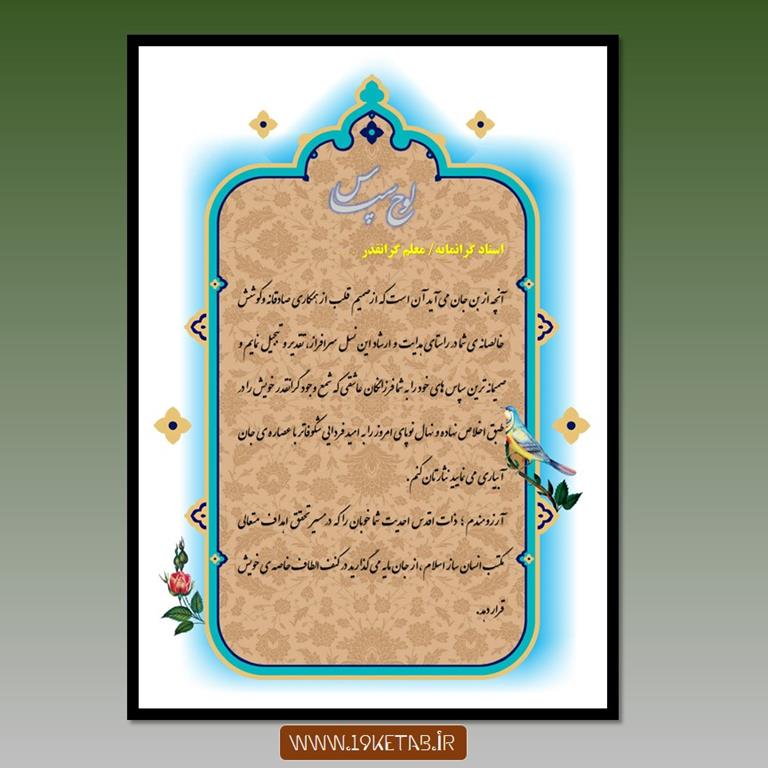 لوح سپاس
استاد گرانمایه/ معلم گرانقدر
آنچه از بن جان می آید آن است که از صمیم قلب از همکاری صادقانه و کوشش
خالصانه ی شما در راستای هدایت و ارشاد این نسل سرافراز، تقدیر و تبجیل نمایم و
صمیمانه ترین سپاس های خود را به شما فرزانگان عاشقی که شمع وجود گرانقدر خویش را در
طبق اخلاص نهاده و نهال نوپای امروز را به امید فردایی شکوفاتر با عصاره ی جان
آبیاری می نمایید نثارتان کنم.
آرزومندم ؛ ذات اقدس احدیت شما خوبان را که در مسیر تحقق اهداف متعالی
مکتب انسان ساز اسلام ، از جان مایه می گذارید در کنف الطاف خاصه ی خویش
قرار دهد.
WWW.19KETAB.IR